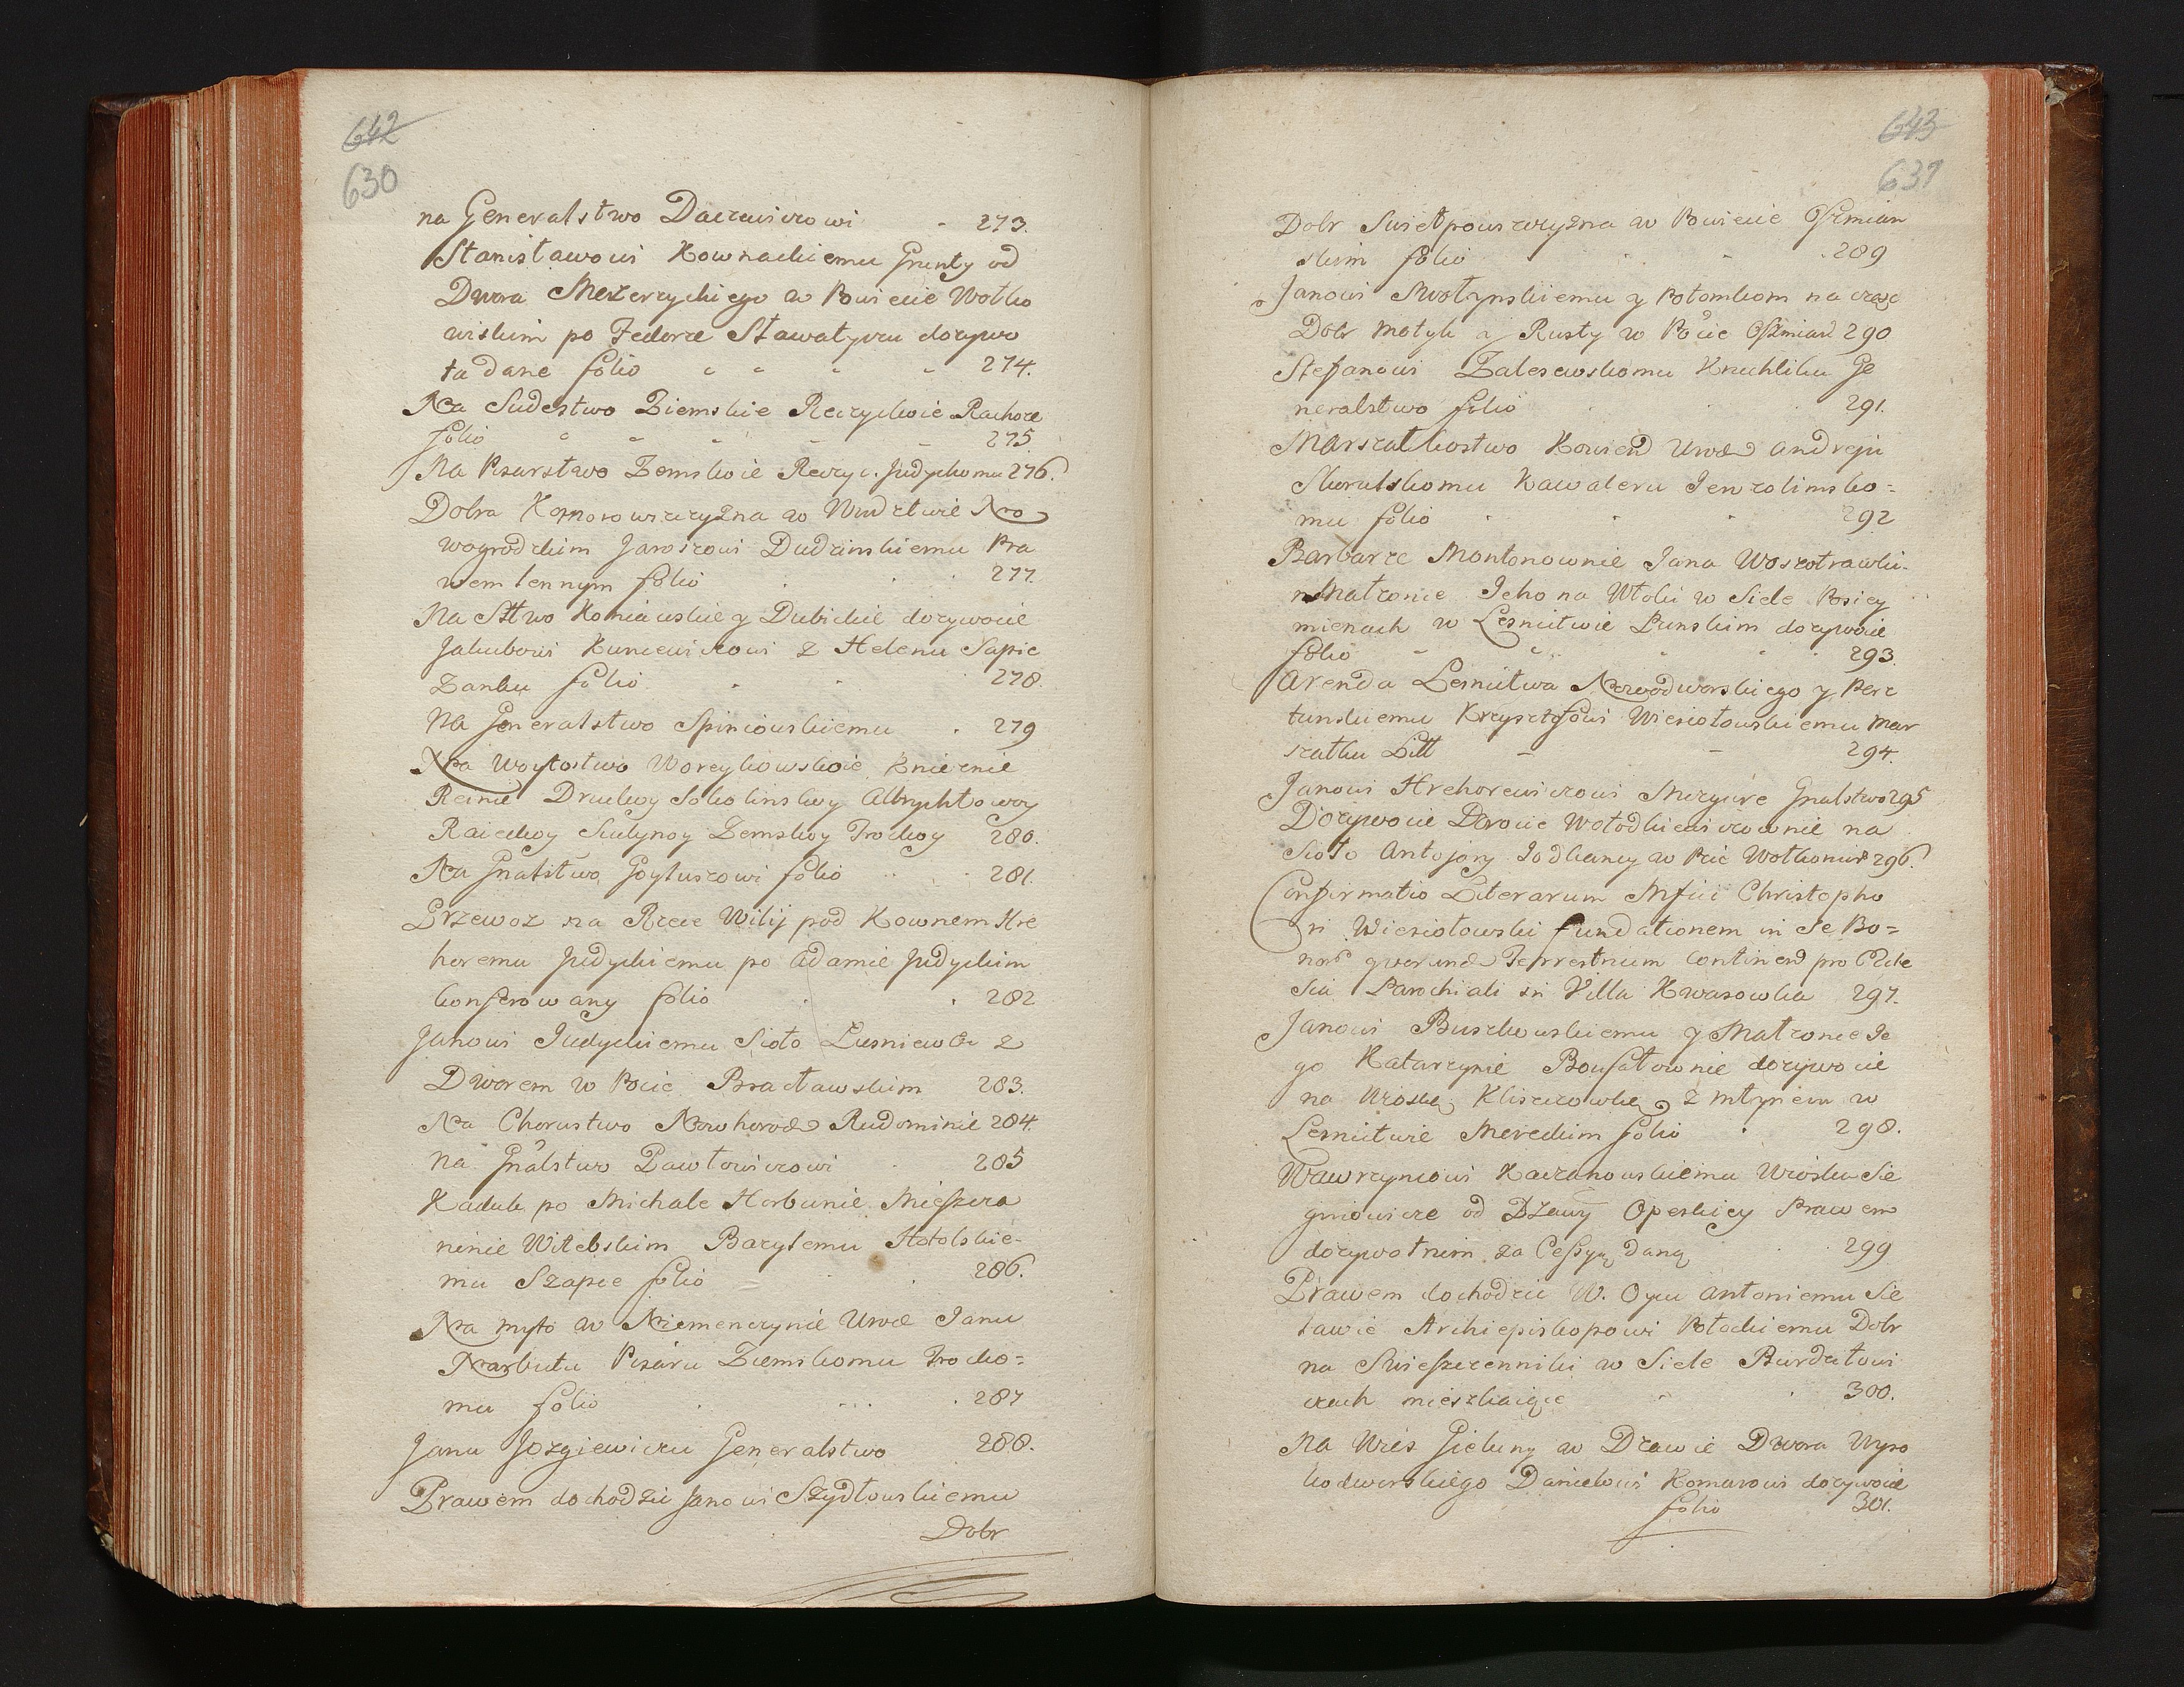 642
630
na Generalstwo Daszewiczowi - 273.
Stanisławowi Kownackiemu Grunty od
Dwora Mezerzyckiego w Powiecie Wołko
wiskim po Fedorze Sławatyczu dozywo
ta dane folio 274.
Na Sudestwo Ziemskie Reczyckoie Rachoze
folio 275.
Na Pisarstwo Zemskoie Reczyc. Judyckomu 276.
Dobra Komorowszczyzna w Wwdztwie No
wogrodzkim Jaroszowi Dudzinskiemu Pra
wem lennym folio 277.
Na Sttwo Koniawskie y Dubickie dozywocie
Jakubowi Kuncewiczowi z Helenu Sapie
Zanku folio 278.
Na Generalstwo Spinciowskiemu . 279
Na Woytostwo Woreykowskoie Kniehnie
Reinie Druckoy Sokolinskoy Albrychtowoy
Raieckoy Sudynoy Zemskoy Trockoy 280.
Na Gnalstwo Goytuszowi folio 281.
Przewoz na Rzece Wilij pod Kownem Hre
horemu Judyckiemu po Adamie Judyckim
konferowany folio 282
Janowi Judyckiemu Sioło Lusniewo z
Dworem w Pocie Bracławskim 283.
Na Chorustwo Nowhorod Rudominie 284.
Na Gnalstwo Pawłowiczowi 285
Kaduk po Michale Horbunie Mieszcza
ninie Witebskim Bazylemu Hotolskie-
mu Szapce folio 286.
Na myto w Niemenczynie Urod Janu
Narbutu Pisaru Ziemskomu Trocko=
mu folio 287
Janu Jozgiewiczu Generalstwo 288.
Prawem dochodzic Janowi Szydłowskiemu
Dobr
643
631
Dobr Swietpowszczyzna w Powiecie Oszmian
skim folio 289
Janowi Swolynskiemu y Potomkom na czesc
Dobr Motyk a Rusty w Pocie Oszmian 290
Stefanowi Zalesewskomu Kruhliku Ge
neralstwo folio 291.
Marszałkostwo Kowien Urod Andreju
Skorulskomu Kawaleru Jerozolimsko=
mu folio 292
Barbarze Montonownie Jana Woszotrawki-
Małzonie Jeho na Włoki w Siele Posiey
mienach w Lesnictwie Punskim dozywocie
folio 293.
Arenda Lesnictwa Nowodworskiego y Perz
tunskiemu Krzysztofowi Wiesiołowskiemu Mar
szałku Litt 294.
Janowi Hrehorewiczowi Mozyrze Gnalstwo 295
Dozywocie Dorocie Wołodkiewiczownie na
Sioło Antojozy Jodkancy w Pcie Wołkomir 296.
Confirmatio Literarum Mfici Christopho
ri Wiesiołowski fundationem in Se Bo=
nor quorund Terrestrium continend pro Eccle
sia Parochiali in Villa Kwasowka 297.
Janowi Buszkowskiemu y Małzonie Je
go Katarzynie Boufałownie dozywocie
na Wioskę Kliszczowkę z młynem w
Lesnictwie Mereckim folio . 298.
Wawrzyncowi Kaczanowskiemu Wiosku Sie
gniowicze od Dzawy Opeskiey Prawem
dozywotnim za Cessyą daną 299
Prawem dochodzic W. Oycu Antoniemu Sie
lawie Archiepiskopowi Połockiemu Dobr
na Swieszczenniki w Siele Burdziłowi
czach mieszkaiące 300.
Na Wies Gieluny w Dzawie Dwora Wyso
kodworskiego Danielowi Komarowi dozywocie
folio 301.